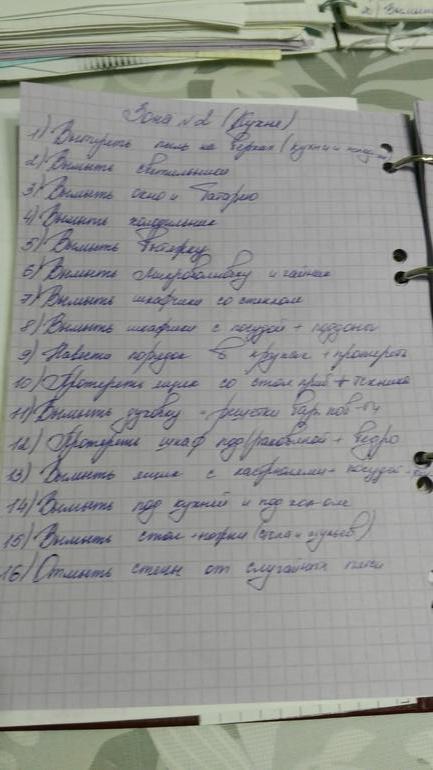 2) Вымыть
Зона №2 (Кухня)
1) Вытереть пыль на верхах (кухни и
2) Вымыть светильники
3) Вымыть окно и батарею
4) Вымыть холодильник
5) Вымыть вытяжку
6) Вымыть микроволновку и чайник
7) Вымыть шкафчики со стеклом
8) Вымыть шкафчики с посудой + поддоны
9) Навести порядок в крупах + протереть
10) Протереть ящик со стол приб + техника
11) Вымыть духовку + решетки вар. пов-ть
12) Протереть шкаф под раковиной + ведро
13) Вымыть ящик с кастрюлями + посудой
14) Вымыть под кухней и под хол-ом
15) Вымыть стол + ножки (стола и стульев)
16) Отмыть стены от случайных пятен